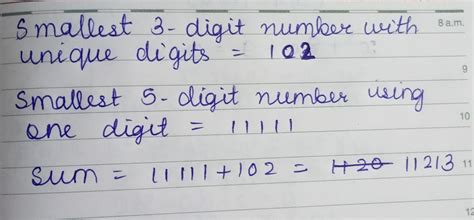 Smallest 3-digit number with 8 a.m.
unique digits = 102
9
Smallest 5-digit number using
one digit = 11111 10
Sum = 11111+102 = 1120 11213 11
12